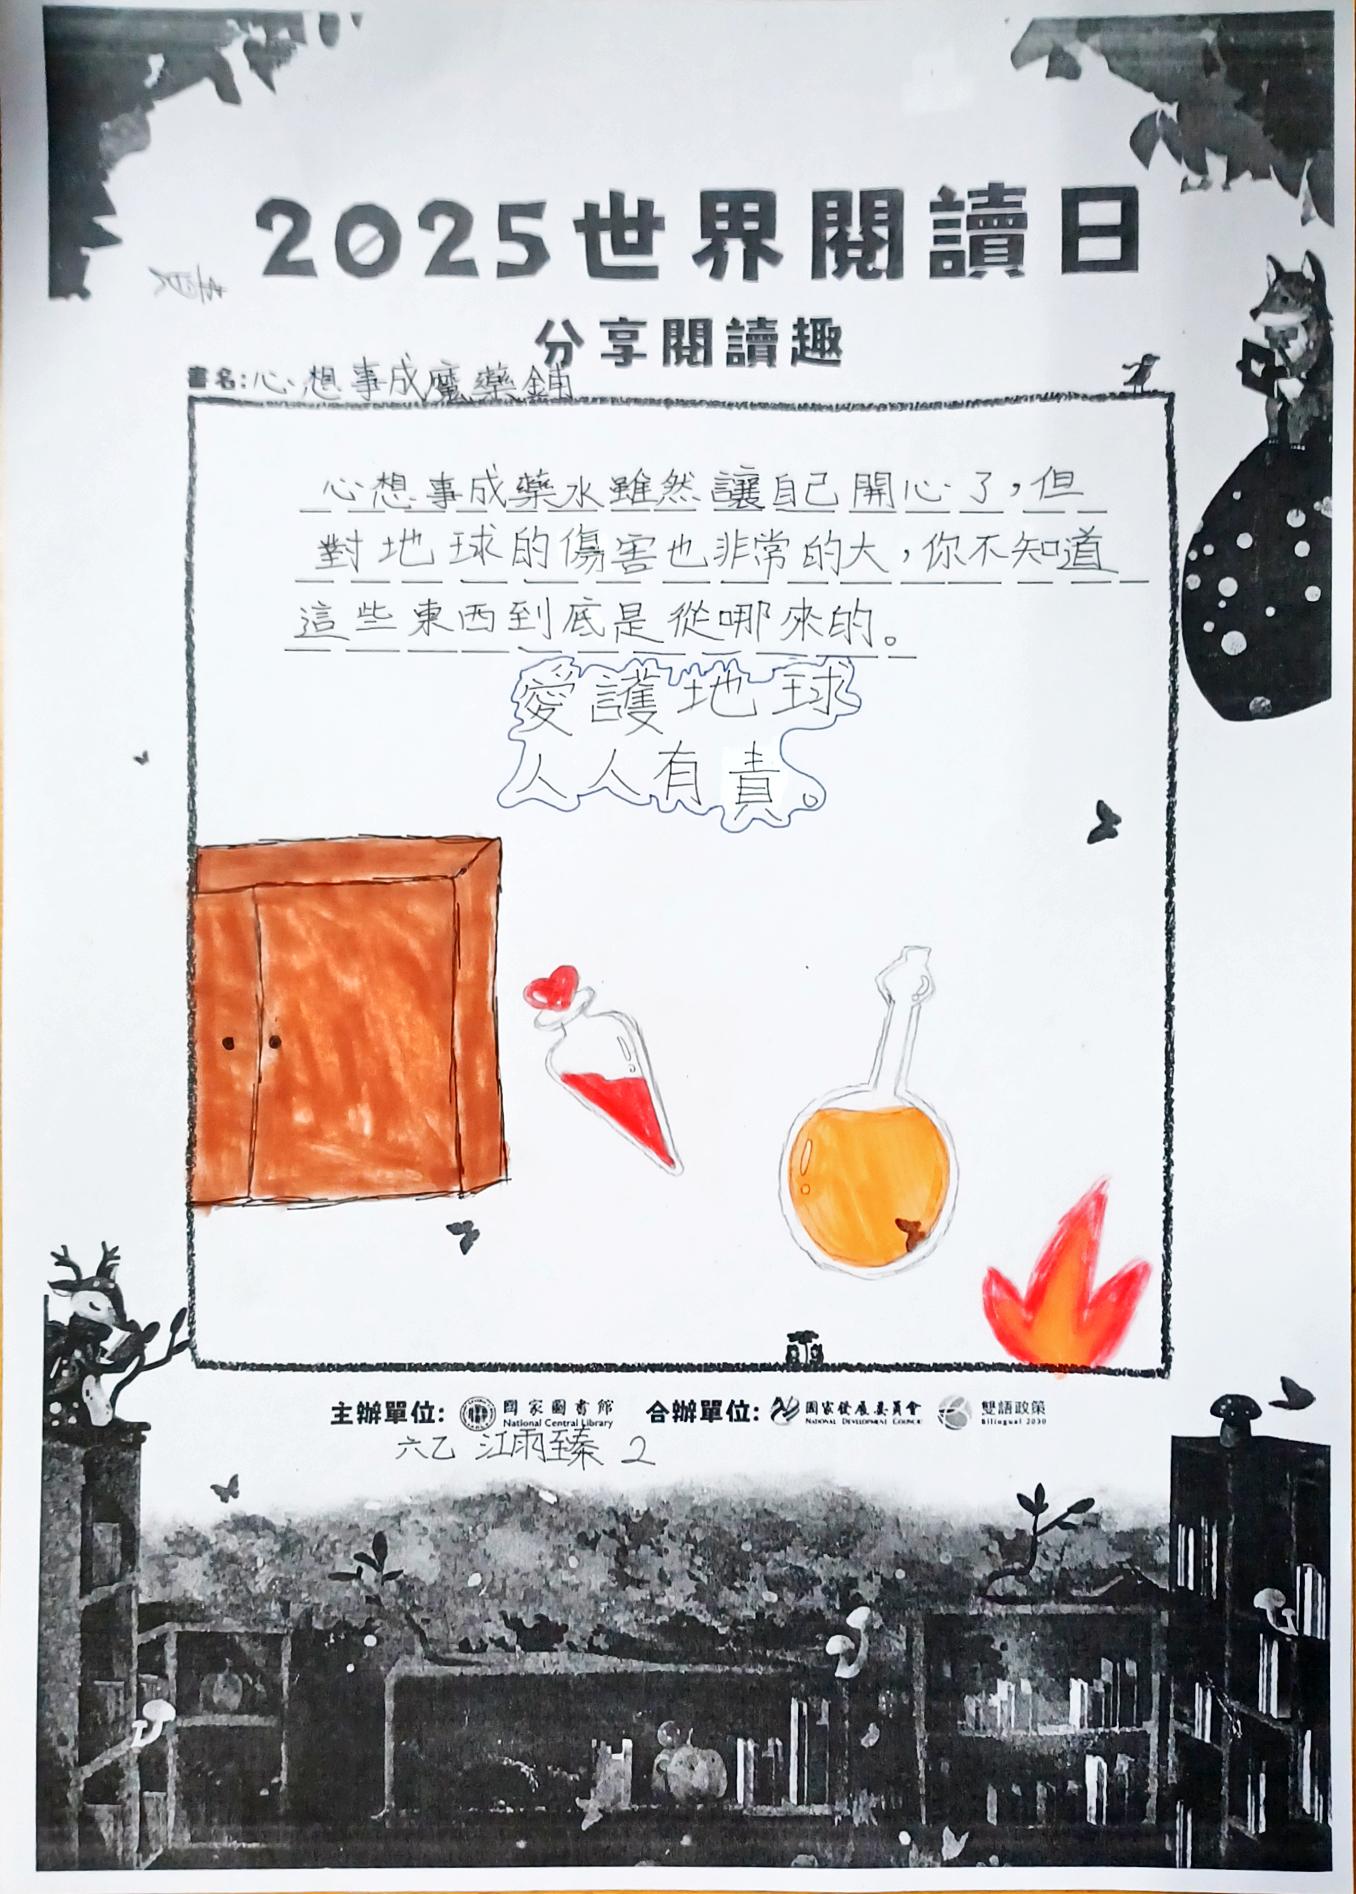 2025世界閱讀日
責
分享閱讀趣
書名:心想事成魔藥鋪
心想事成藥水雖然讓自己開心了,但
對地球的傷害也非常的大,你不知道
這些東西到底是從哪來的。
愛護地球
人人有責。
主辦單位: 國家圖書館 National Central Library 合辦單位: 國家發展委員會 National Development Council 雙語政策 Bilingual 2030
六乙 江雨臻 2